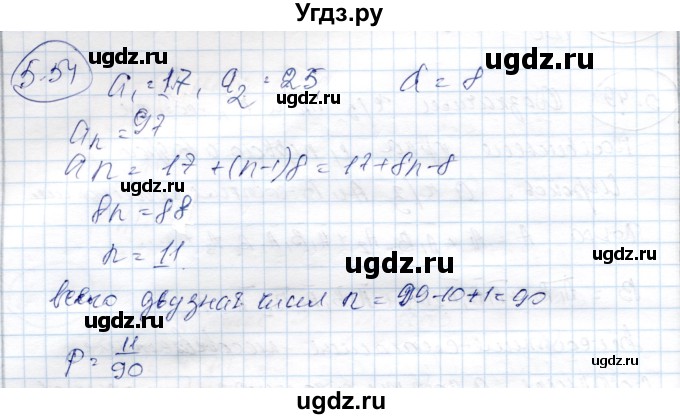 Угдз.ру
5.54
a₁ = 17, a₂ = 25   d = 8
aₙ = 97
aₙ = 17 + (n-1)8 = 17 + 8n - 8
8n = 88
n = 11
всего двузнач чисел n = 99-10+1=90
P = 11/90
ugdz.ru
ugdz.ru
ugdz.ru
ugdz.ru
ugdz.ru
ugdz.ru
ugdz.ru
ugdz.ru
ugdz.ru